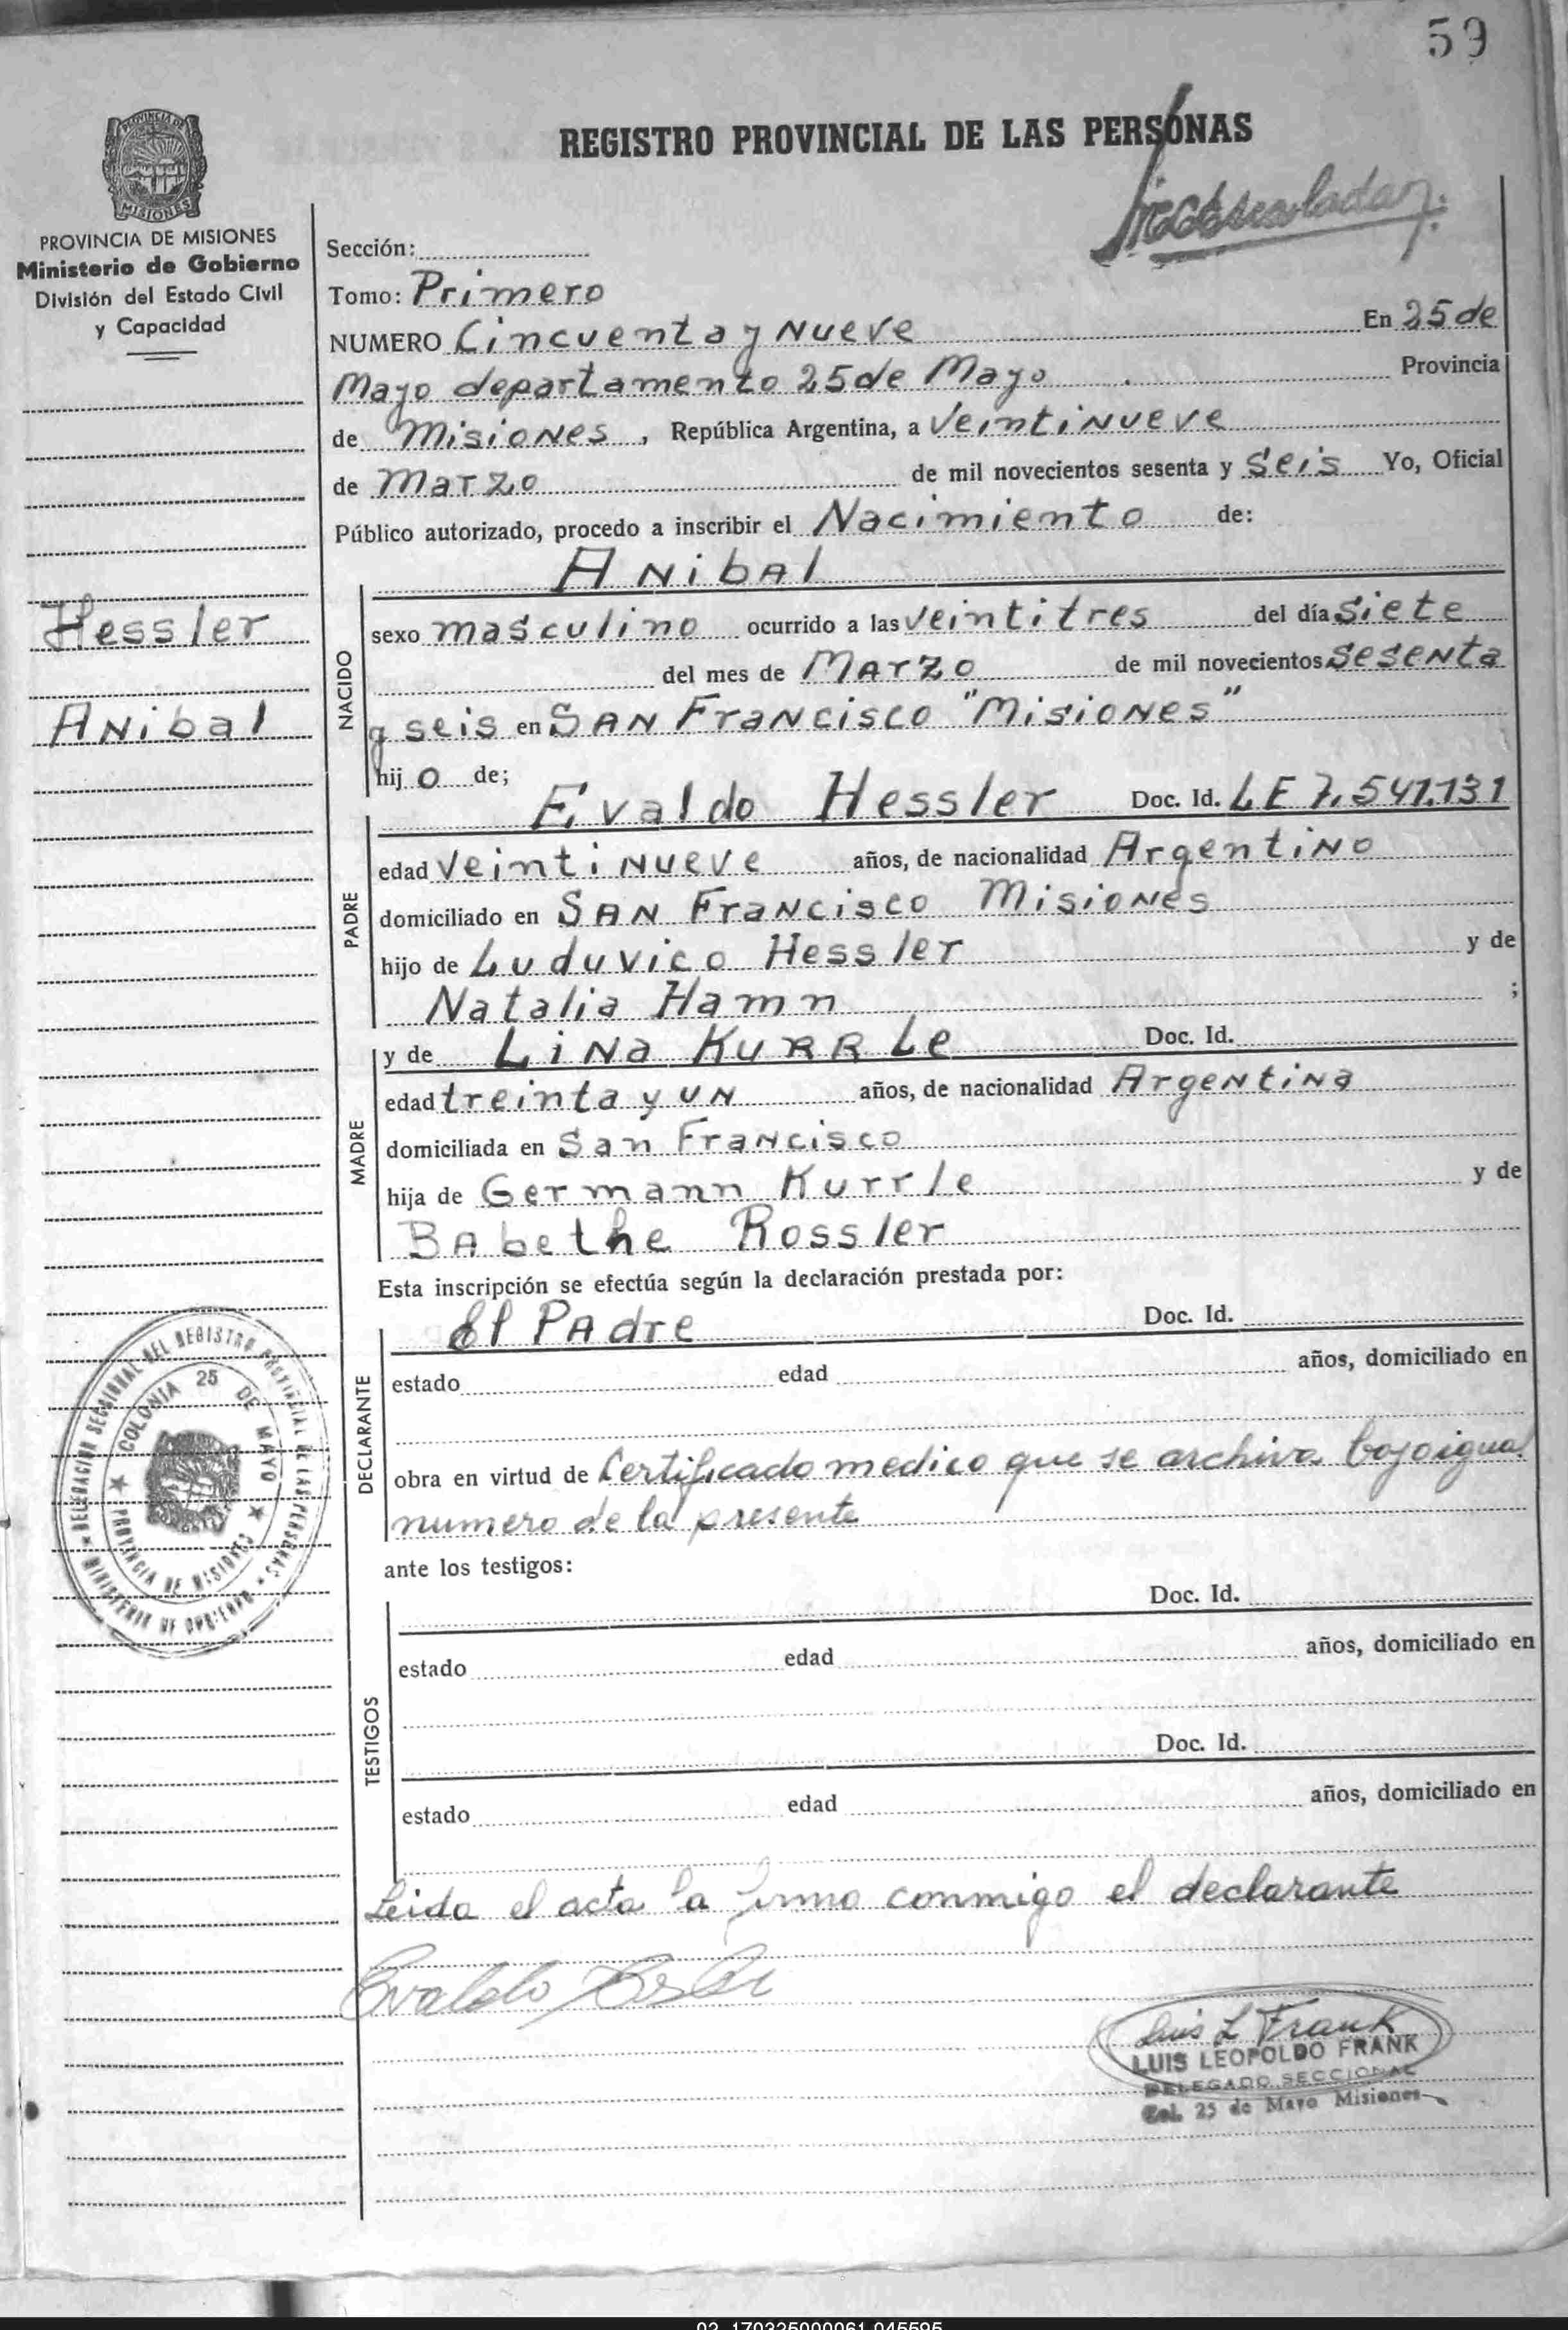 59
REGISTRO PROVINCIAL DE LAS PERSONAS
PROVINCIA DE
MISIONES
PROVINCIA DE MISIONES
Ministerio de Gobierno
División del Estado Civil
y Capacidad
Sección:
Tomo: Primero
NUMERO Cincuenta y Nueve En 25 de
Mayo departamento 25 de Mayo Provincia
de Misiones, República Argentina, a Veintinueve
de Marzo de mil novecientos sesenta y Seis Yo, Oficial
Público autorizado, procedo a inscribir el Nacimiento de:
Anibal
Hessler
Anibal
NACIDO
sexo masculino ocurrido a las Veintitres del día Siete
del mes de Marzo de mil novecientos Sesenta
y seis en San Francisco "Misiones"
hijo de;
Evaldo Hessler Doc. Id. LE 7.541.131
PADRE
edad Veintinueve años, de nacionalidad Argentino
domiciliado en San Francisco Misiones
hijo de Luduvico Hessler y de
Natalia Hamn ;
y de Lina Kurrle Doc. Id.
MADRE
edad treinta y un años, de nacionalidad Argentina
domiciliada en San Francisco
hija de Germann Kurrle y de
Babethe Rossler
Esta inscripción se efectúa según la declaración prestada por:
El Padre Doc. Id.
DECLARANTE
estado edad años, domiciliado en
obra en virtud de Certificado medico que se archiva bajo igual
numero de la presente
DELEGACION SECCIONAL DEL REGISTRO PROVINCIAL DE LAS PERSONAS
MINISTERIO DE GOBIERNO
COLONIA 25 DE MAYO
PROVINCIA DE MISIONES
ante los testigos:
Doc. Id.
TESTIGOS
estado edad años, domiciliado en
Doc. Id.
estado edad años, domiciliado en
Leida el acta la firma conmigo el declarante
Evaldo
Luis L Frank
LUIS LEOPOLDO FRANK
DELEGADO SECCIONAL
Col. 25 de Mayo Misiones
02_170325000061_045595